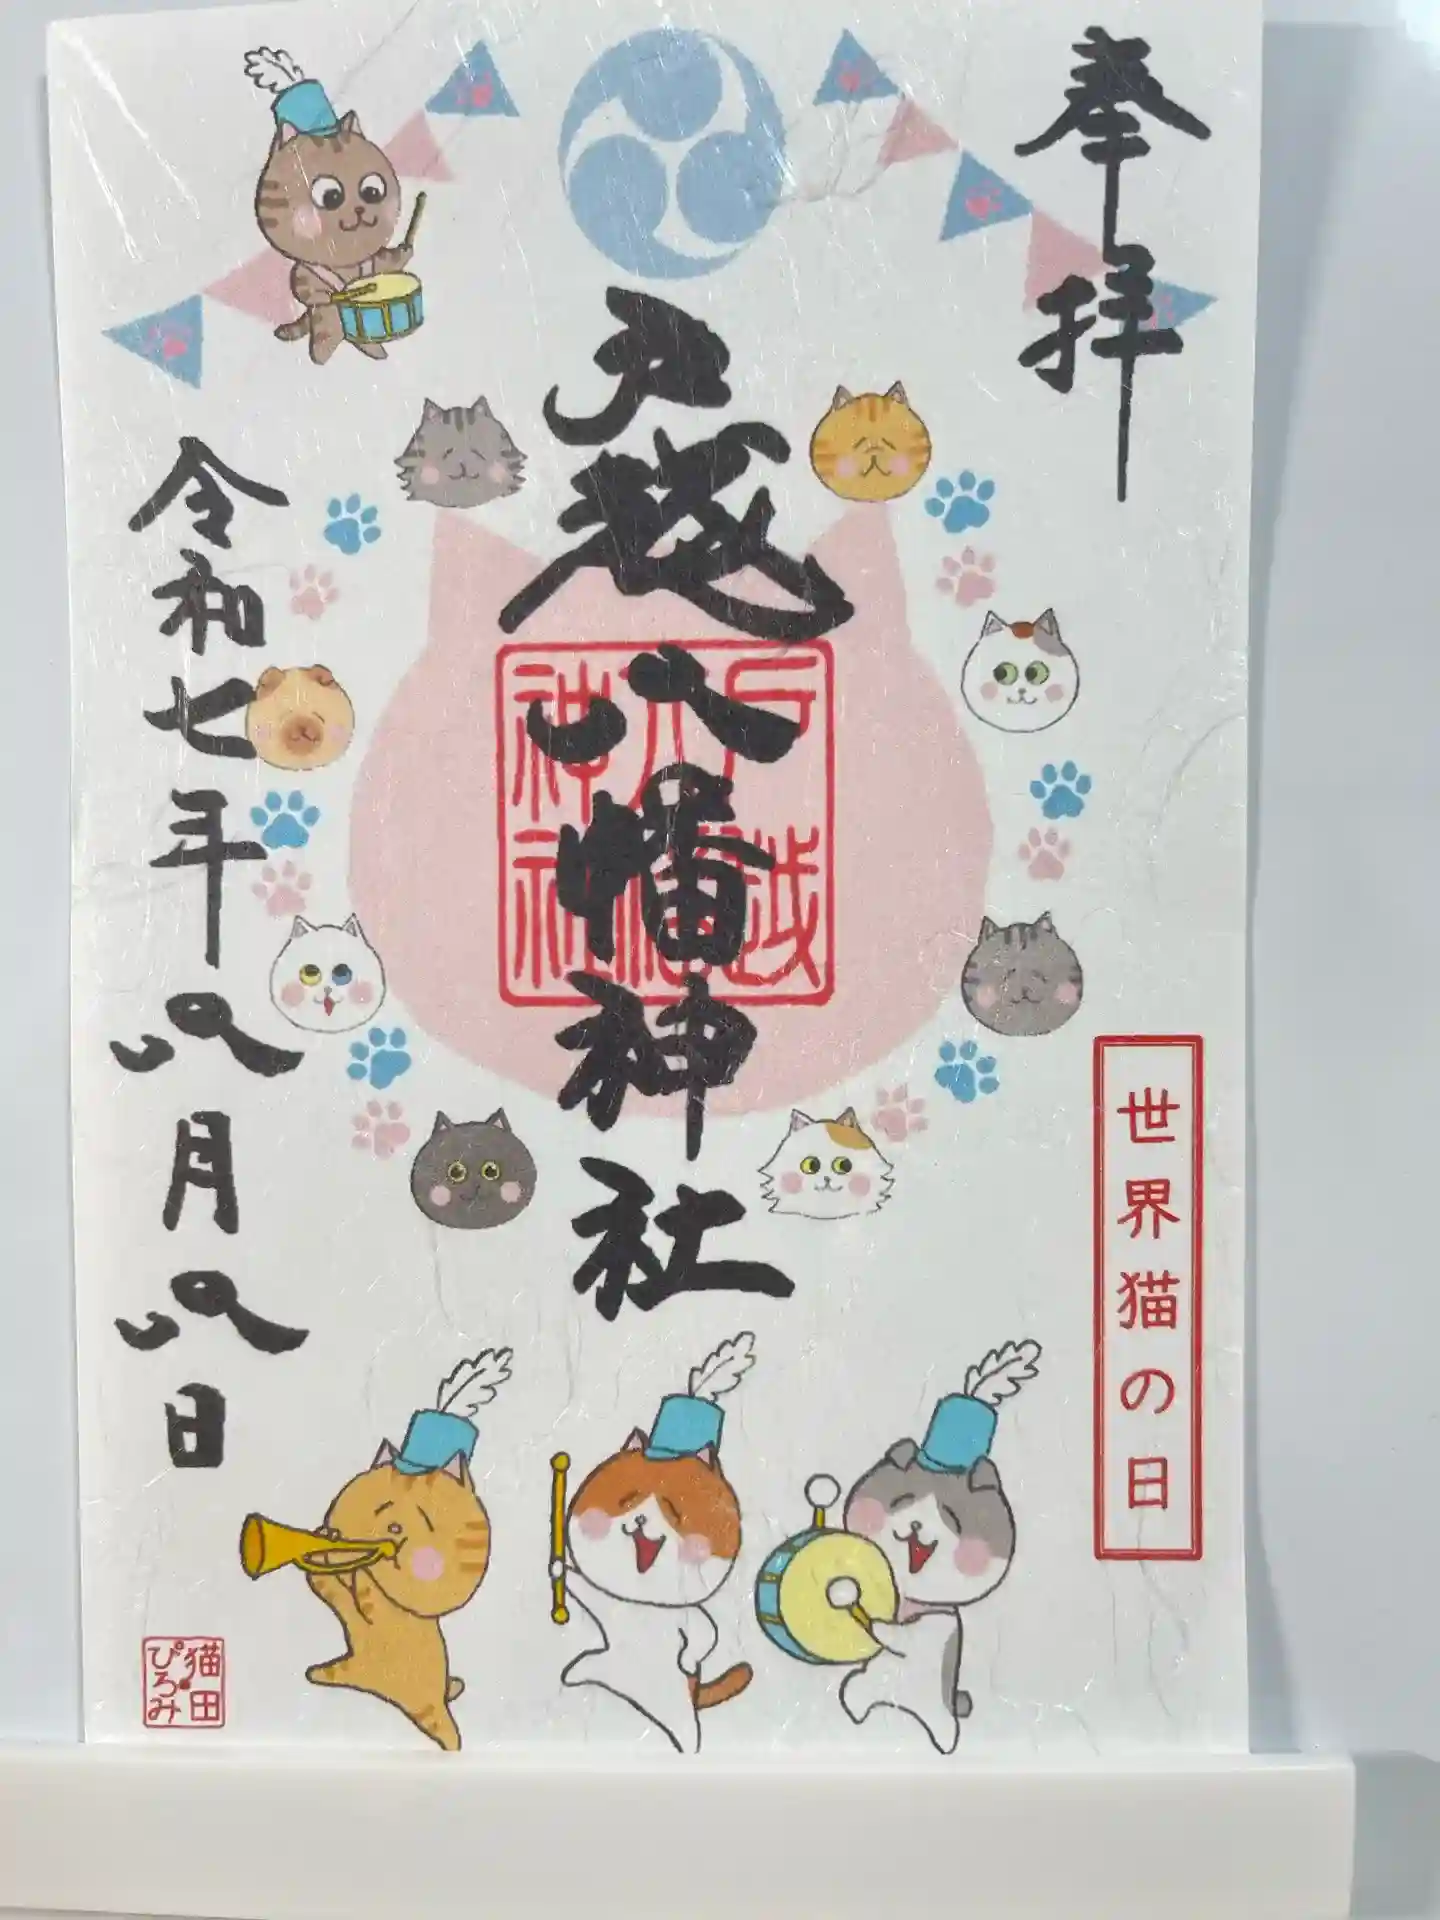 奉拝
戸越八幡神社
戸越
八幡
神社
世界猫の日
令和七年八月八日
猫田
ぴろみ